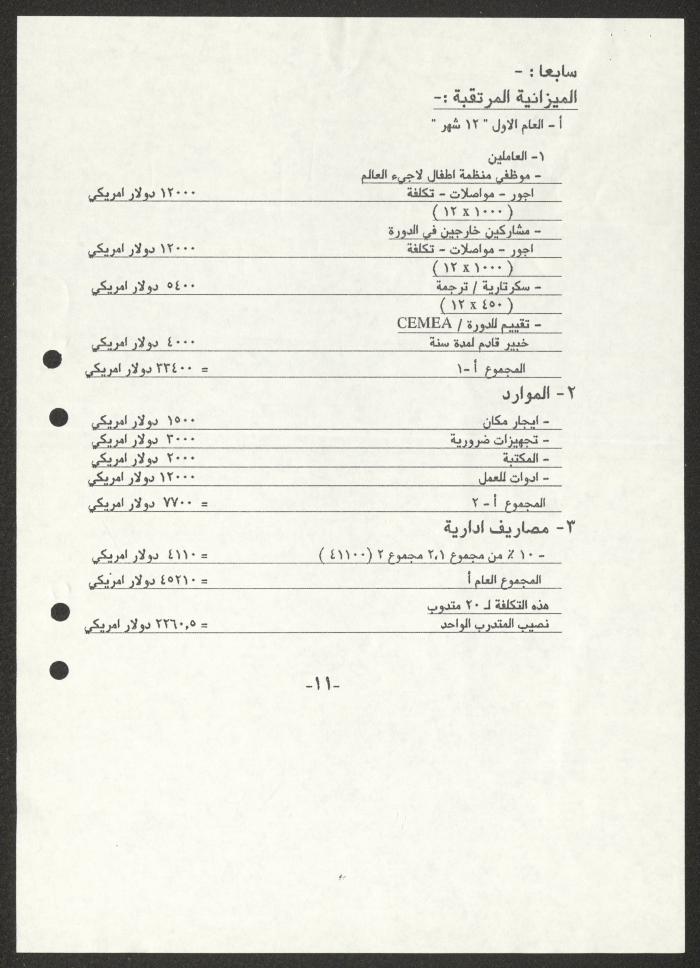 سابعا : -
الميزانية المرتقبة :-
أ - العام الاول " ١٢ شهر "
١- العاملين
- موظفي منظمة اطفال لاجيء العالم
اجور - مواصلات - تكلفة ١٢٠٠٠ دولار امريكي
( ١٠٠٠ x ١٢ )
- مشاركين خارجين في الدورة
اجور - مواصلات - تكلفة ١٢٠٠٠ دولار امريكي
( ١٠٠٠ x ١٢ )
- سكرتارية / ترجمة ٥٤٠٠ دولار امريكي
( ٤٥٠ x ١٢ )
- تقييم للدورة / CEMEA
خبير قادم لمدة سنة ٤٠٠٠ دولار امريكي
المجموع أ -١ = ٣٣٤٠٠ دولار امريكي
٢- الموارد
- ايجار مكان ١٥٠٠ دولار امريكي
- تجهيزات ضرورية ٣٠٠٠ دولار امريكي
- المكتبة ٢٠٠٠ دولار امريكي
- ادوات للعمل ١٢٠٠٠ دولار امريكي
المجموع أ - ٢ = ٧٧٠٠ دولار امريكي
٣- مصاريف ادارية
- ١٠ ٪ من مجموع ٢،١ مجموع ٢ (٤١١٠٠ ) = ٤١١٠ دولار امريكي
المجموع العام أ = ٤٥٢١٠ دولار امريكي
هذه التكلفة لـ ٢٠ متدوب
نصيب المتدرب الواحد = ٢٢٦٠,٥ دولار امريكي
-١١-